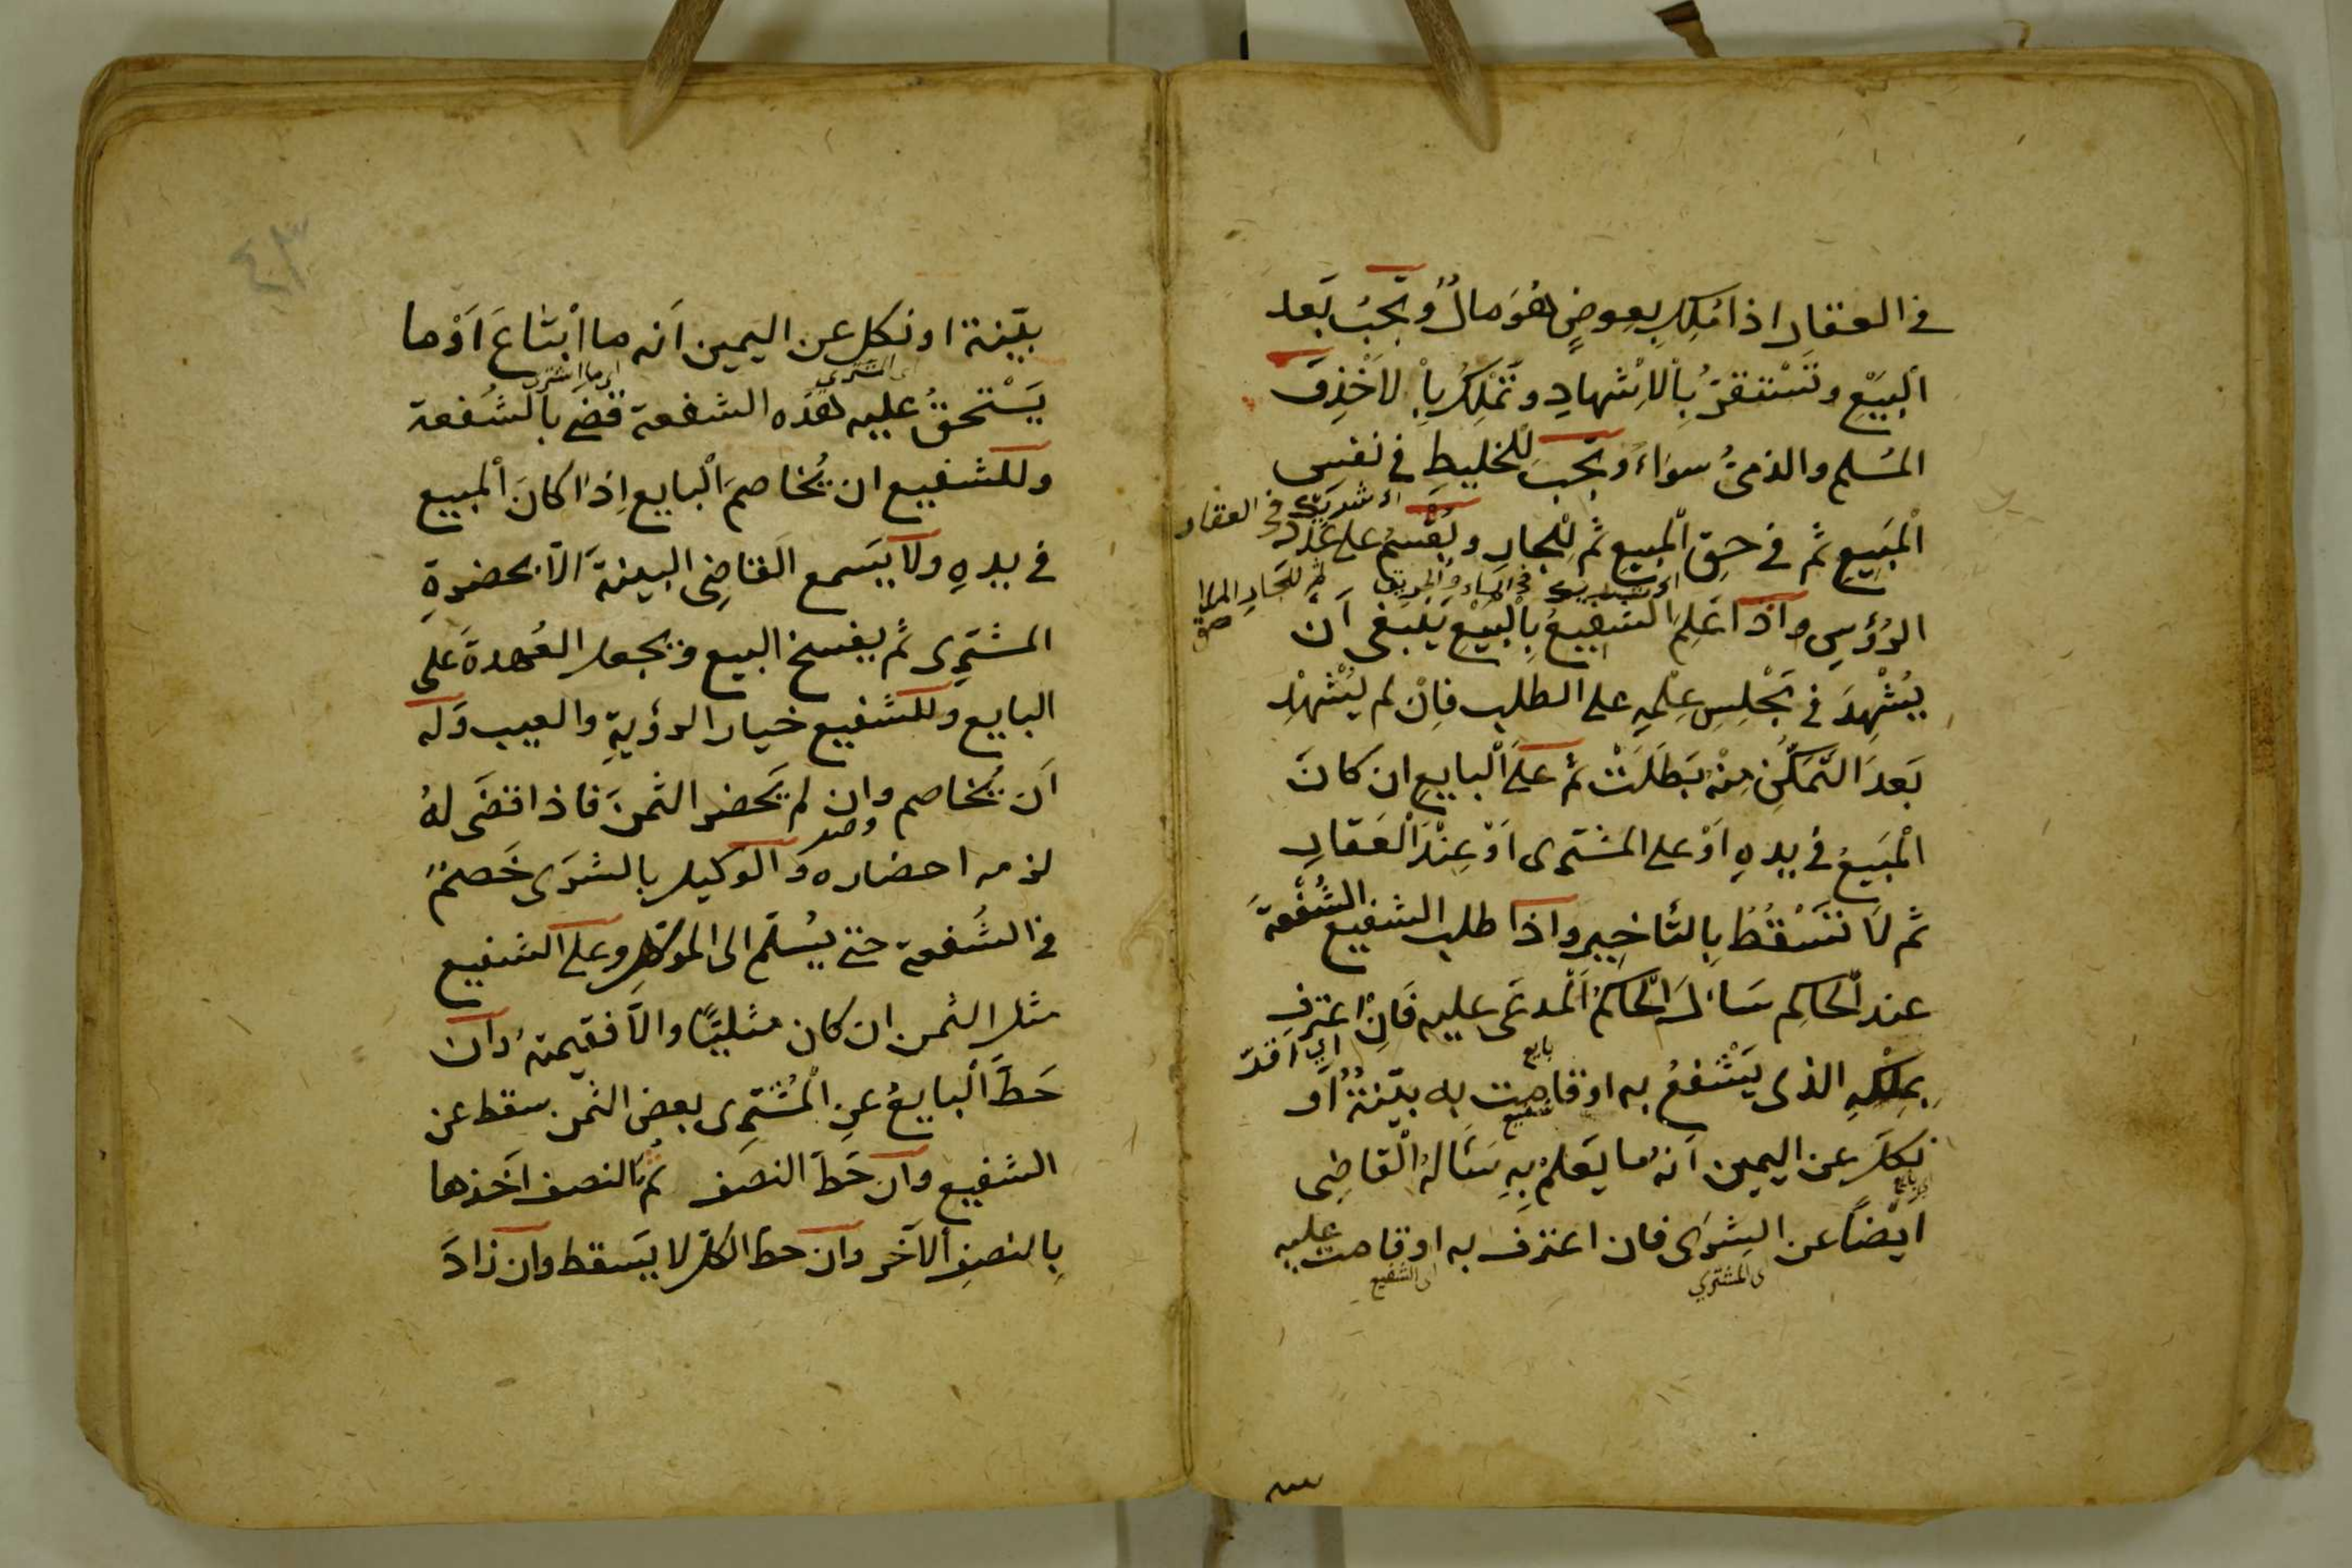 في العقار اذا مُلِكَ بِعِوضٍ هُوَ مالٌ وتَجِبُ بَعد
البَيْعِ وتَسْتقرّ بِالاشْهادِ وتَمْلِكُ بالاَخْذِ و
المُسلم والذميُّ سواءٌ وتَجبُ للخليطِ في نفس
اى شريك فى العقار
المَبيعِ ثم في حقِ المبيعِ ثم لِلْجارِ ويُقْسَمُ على عَدَد
اى شريك فى الماء والطريق ثم للجار الملا
صق
الرُؤسِ واذا عَلِمَ الشفيعُ بِالْبيْعِ يَنْبغى اَن
يُشْهِدَ في مَجْلِسِ عِلْمِهِ على الطلب فاِنْ لم يُشْهِدْ
بَعدَ التَّمَكُّنِ مِنْهُ بَطَلَتْ ثم على البايع ان كانَ
المَبيعُ في يدهِ اَوْ على المشترى اَوْ عِنْدَ الْعَقارِ
ثم لا تَسْقُطُ بِالتأخيرِ واذا طلب الشفيع الشُفْعةَ
عند الحَاكِم سَأل الحاكمُ المدعَى عليه فَاِن اعترف
اى اقرّ
بِمِلْكِهِ الذى يَشْفعُ به او قامت به بيّنةٌ اَو
بايع
شفيع
نكلَ عن اليمين اَنهُ ما يَعلمُ بِهِ سَئَالهُ القاضِى
اى بايع
ايْضاً عن الشِرَى فان اعترف به او قامت عليه
اى المشترى
اى الشفيع
بيّنة او نكل عن اليمين اَنه ما ابْتاعَ اَوْ ما
اى المشترى
اى ما اشترى
يَسْتحقُ عليه هذه الشفعة قضى بالشُفعة
وللشفيع ان يُخاصمَ البايع اِذا كانَ المبيع
في يدهِ ولا يَسمع القاضِى البينةَ الاّ بحضرةِ
المشترى ثم يفسخ البيع ويجعل العُهدةَ على
البايع وللشفيع خيار الرؤيةِ والعيب وله
اَن يُخاصم وان لم يَحضر الثمنَ فاذا قضَى لهُ
لزمه احضاره والوكيل بالشرَى خَصمٌ
في الشُفعة حتى يُسَلِّم الى الموكِّل وعلى الشفيع
مثل الثمن ان كان مثليّاً والاّ فقيمتهُ وان
حَطَّ البايعُ عنِ المُشترِى بعض الثمن سقط عن
الشفيع وان حَطّ النصَف ثم النصف اَخذها
بِالنصفِ الآخر وان حطّ الكلّ لا يَسقط وان زادَ
٤٣